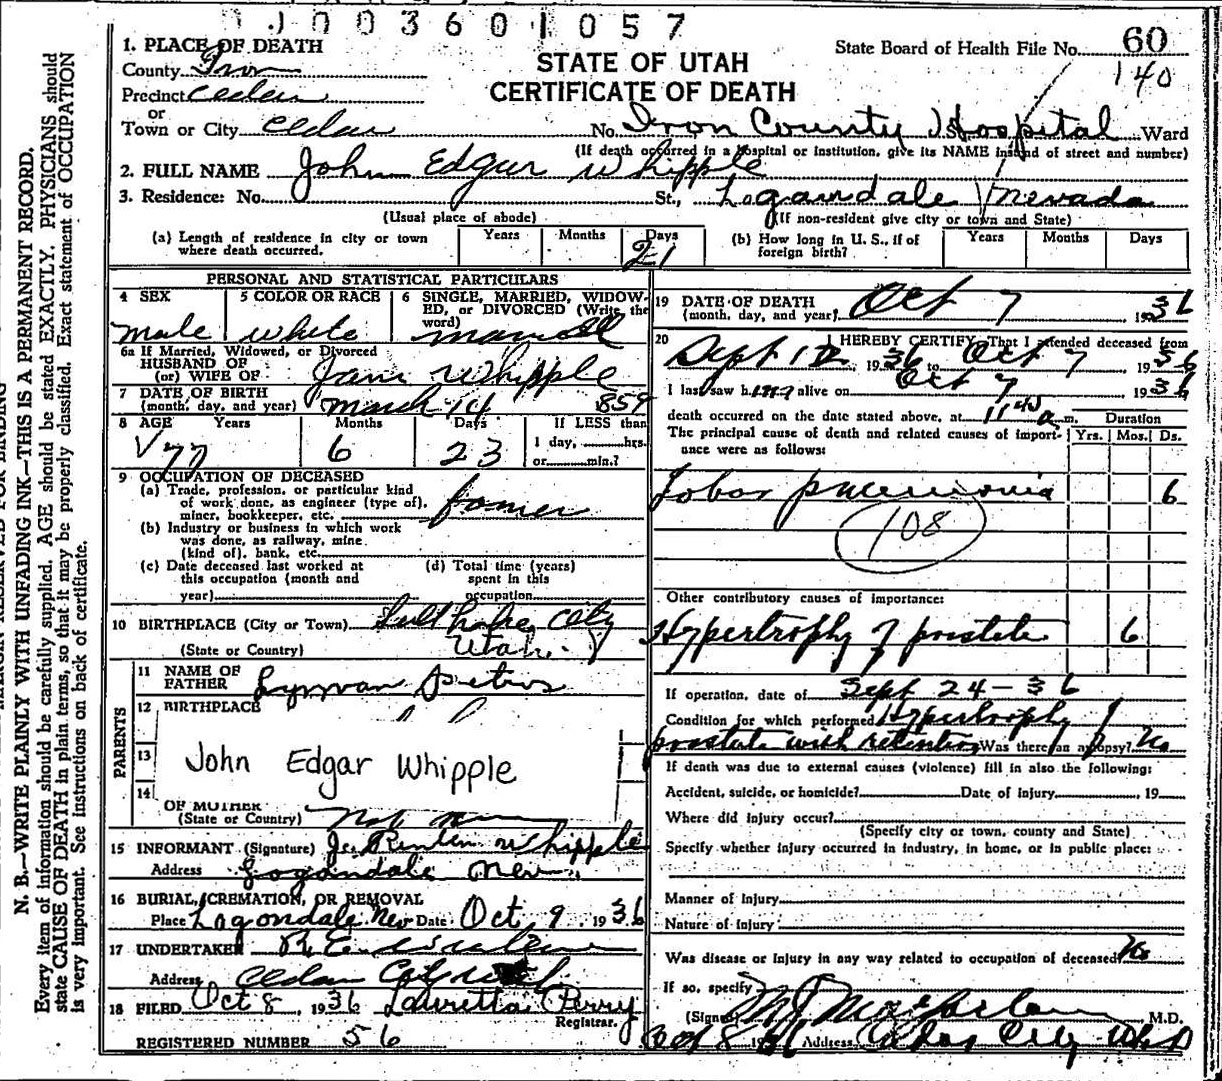 J 0 0 3 6 0 1 0 5 7
1. PLACE OF DEATH
County Iron
Precinct Cedar
or
Town or City Cedar
STATE OF UTAH
CERTIFICATE OF DEATH
State Board of Health File No. 60
140
No. Iron County Hospital Ward
(If death occurred in a hospital or institution, give its NAME instead of street and number)
2. FULL NAME John Edgar Whipple
3. Residence: No. St., Logandale Nevada
(Usual place of abode) (If non-resident give city or town and State)
(a) Length of residence in city or town where death occurred. Years Months Days 21
(b) How long in U. S., if of foreign birth? Years Months Days
PERSONAL AND STATISTICAL PARTICULARS
4 SEX 5 COLOR OR RACE 6 SINGLE, MARRIED, WIDOW-
ED, or DIVORCED (Write the
word)
male white married
6a If Married, Widowed, or Divorced
HUSBAND OF
(or) WIFE OF Jane Whipple
7 DATE OF BIRTH
(month, day, and year) March 14 859
8 AGE Years Months Days If LESS than
1 day, hrs.
or min.?
77 6 23
9 OCCUPATION OF DECEASED
(a) Trade, profession, or particular kind
of work done, as engineer (type of),
miner, bookkeeper, etc. farmer
(b) Industry or business in which work
was done, as railway, mine
(kind of), bank, etc.
(c) Date deceased last worked at
this occupation (month and
year)
(d) Total time (years)
spent in this
occupation
10 BIRTHPLACE (City or Town) Salt Lake City
(State or Country) Utah.
PARENTS
11 NAME OF
FATHER Lyman
12 BIRTHPLACE
13
14
John Edgar Whipple
OF MOTHER
(State or Country)
15 INFORMANT (Signature) Whipple
Address Logandale Nev.
16 BURIAL, CREMATION, OR REMOVAL
Place Logondale Nev Date Oct 9 1936
17 UNDERTAKER
Address Cedar
18 FILED Oct 8, 1936 Lauretta Perry
Registrar.
REGISTERED NUMBER 56
19 DATE OF DEATH
(month, day, and year) Oct 7 1936
20 I HEREBY CERTIFY, That I attended deceased from
Sept 12, 1936 to Oct 7, 1936
I last saw him alive on Oct 7 1936
death occurred on the date stated above, at 11 40 a m. Duration
The principal cause of death and related causes of import-
ance were as follows: Yrs. Mos. Ds.
Lobar pneumonia 6
108
Other contributory causes of importance:
Hypertrophy of prostate 6
If operation, date of Sept 24-36
Condition for which performed Hypertrophy of
prostate with retention Was there an autopsy? No
If death was due to external causes (violence) fill in also the following:
Accident, suicide, or homicide? Date of injury , 19
Where did injury occur?
(Specify city or town, county and State)
Specify whether injury occurred in industry, in home, or in public place:
Manner of Injury
Nature of injury
Was disease or injury in any way related to occupation of deceased? No
If so, specify
(Signed) Macfarlane M.D.
Address Cedar City, Utah
N. B.—WRITE PLAINLY WITH UNFADING INK—THIS IS A PERMANENT RECORD.
Every item of information should be carefully supplied. AGE should be stated EXACTLY. PHYSICIANS should
state CAUSE OF DEATH in plain terms, so that it may be properly classified. Exact statement of OCCUPATION
is very important. See instructions on back of certificate.